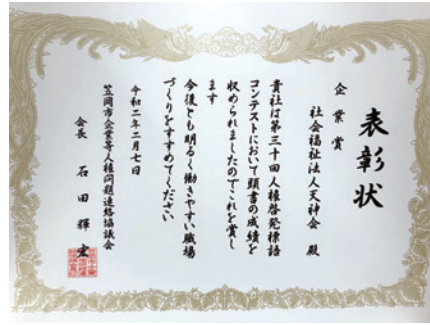 表彰状
企業賞
社会福祉法人天神会 殿
貴社は第三十回人権啓発標語
コンテストにおいて頭書の成績を
収められましたのでこれを賞し
ます
今後とも明るく働きやすい職場
づくりをすすめてください
令和二年二月七日
笠岡市企業等人権問題連絡協議会
会長 石田輝宏